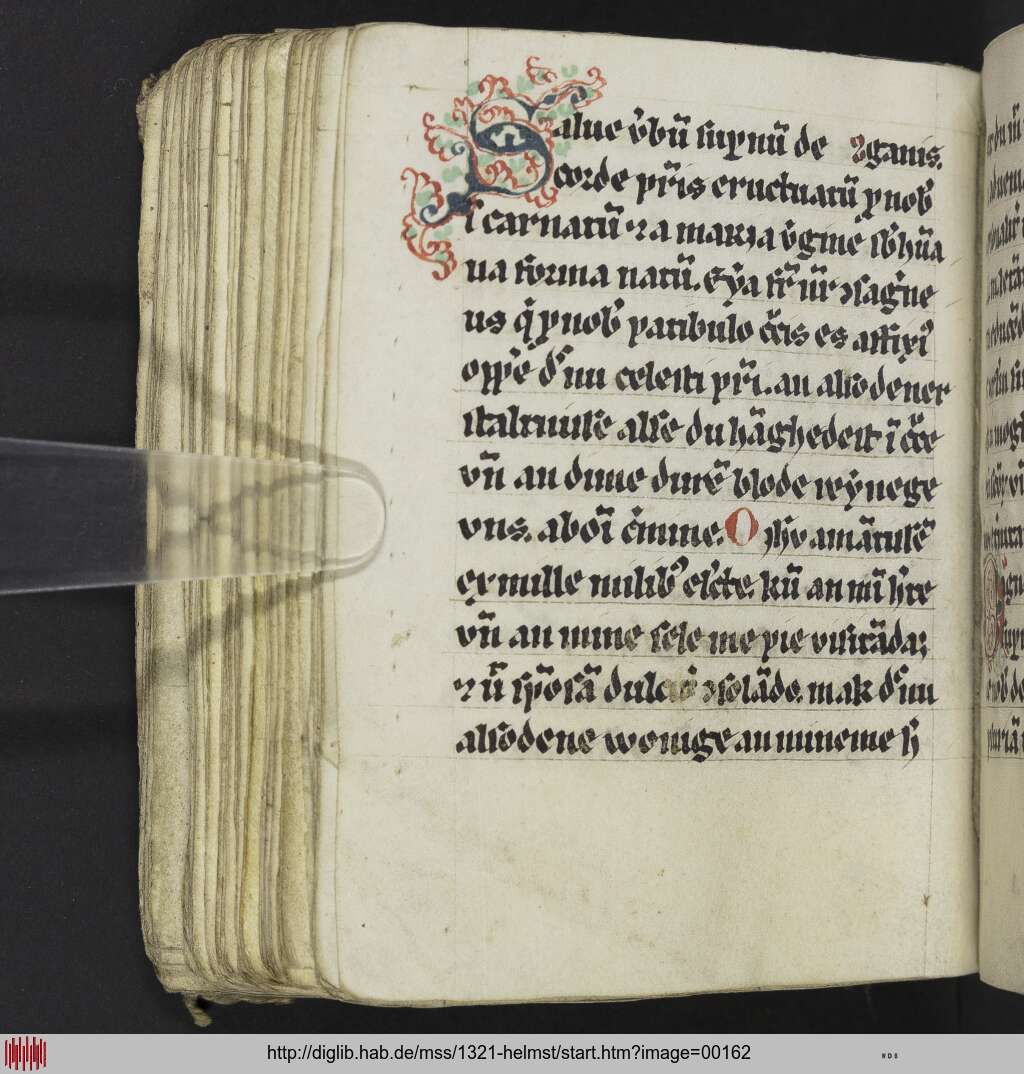 Salue v̄bū suꝑnū de ꝛganis.
corde pr̄is eructuatū ꝓ nob̾
ī carnatū ⁊ a maria v̄gine sb̾ hūa
na forma natū. Eẏa fr̄ ur̄ ꝯsagͥne
us qͥ ꝓ nob̾ patibulo cͨis es affixꝰ
oppͥē dꝰ nu celesti pr̄i. an alsodener
staltnisse alse du hāghedest ī cͨe
vn̄ an dime durē blode reẏnege
vns. ab oī cͥmine. O ih̄u amātissē
ex mille milib̾ elc̄te. kū an mī h̾te
vn̄ an mine sele me pie visitāda;
⁊ ū spōsā dulcit̾ ꝯsolādo. mak dꝰ nu
alsodene woninge an mineme h̾
http://diglib.hab.de/mss/1321-helmst/start.htm?image=00162